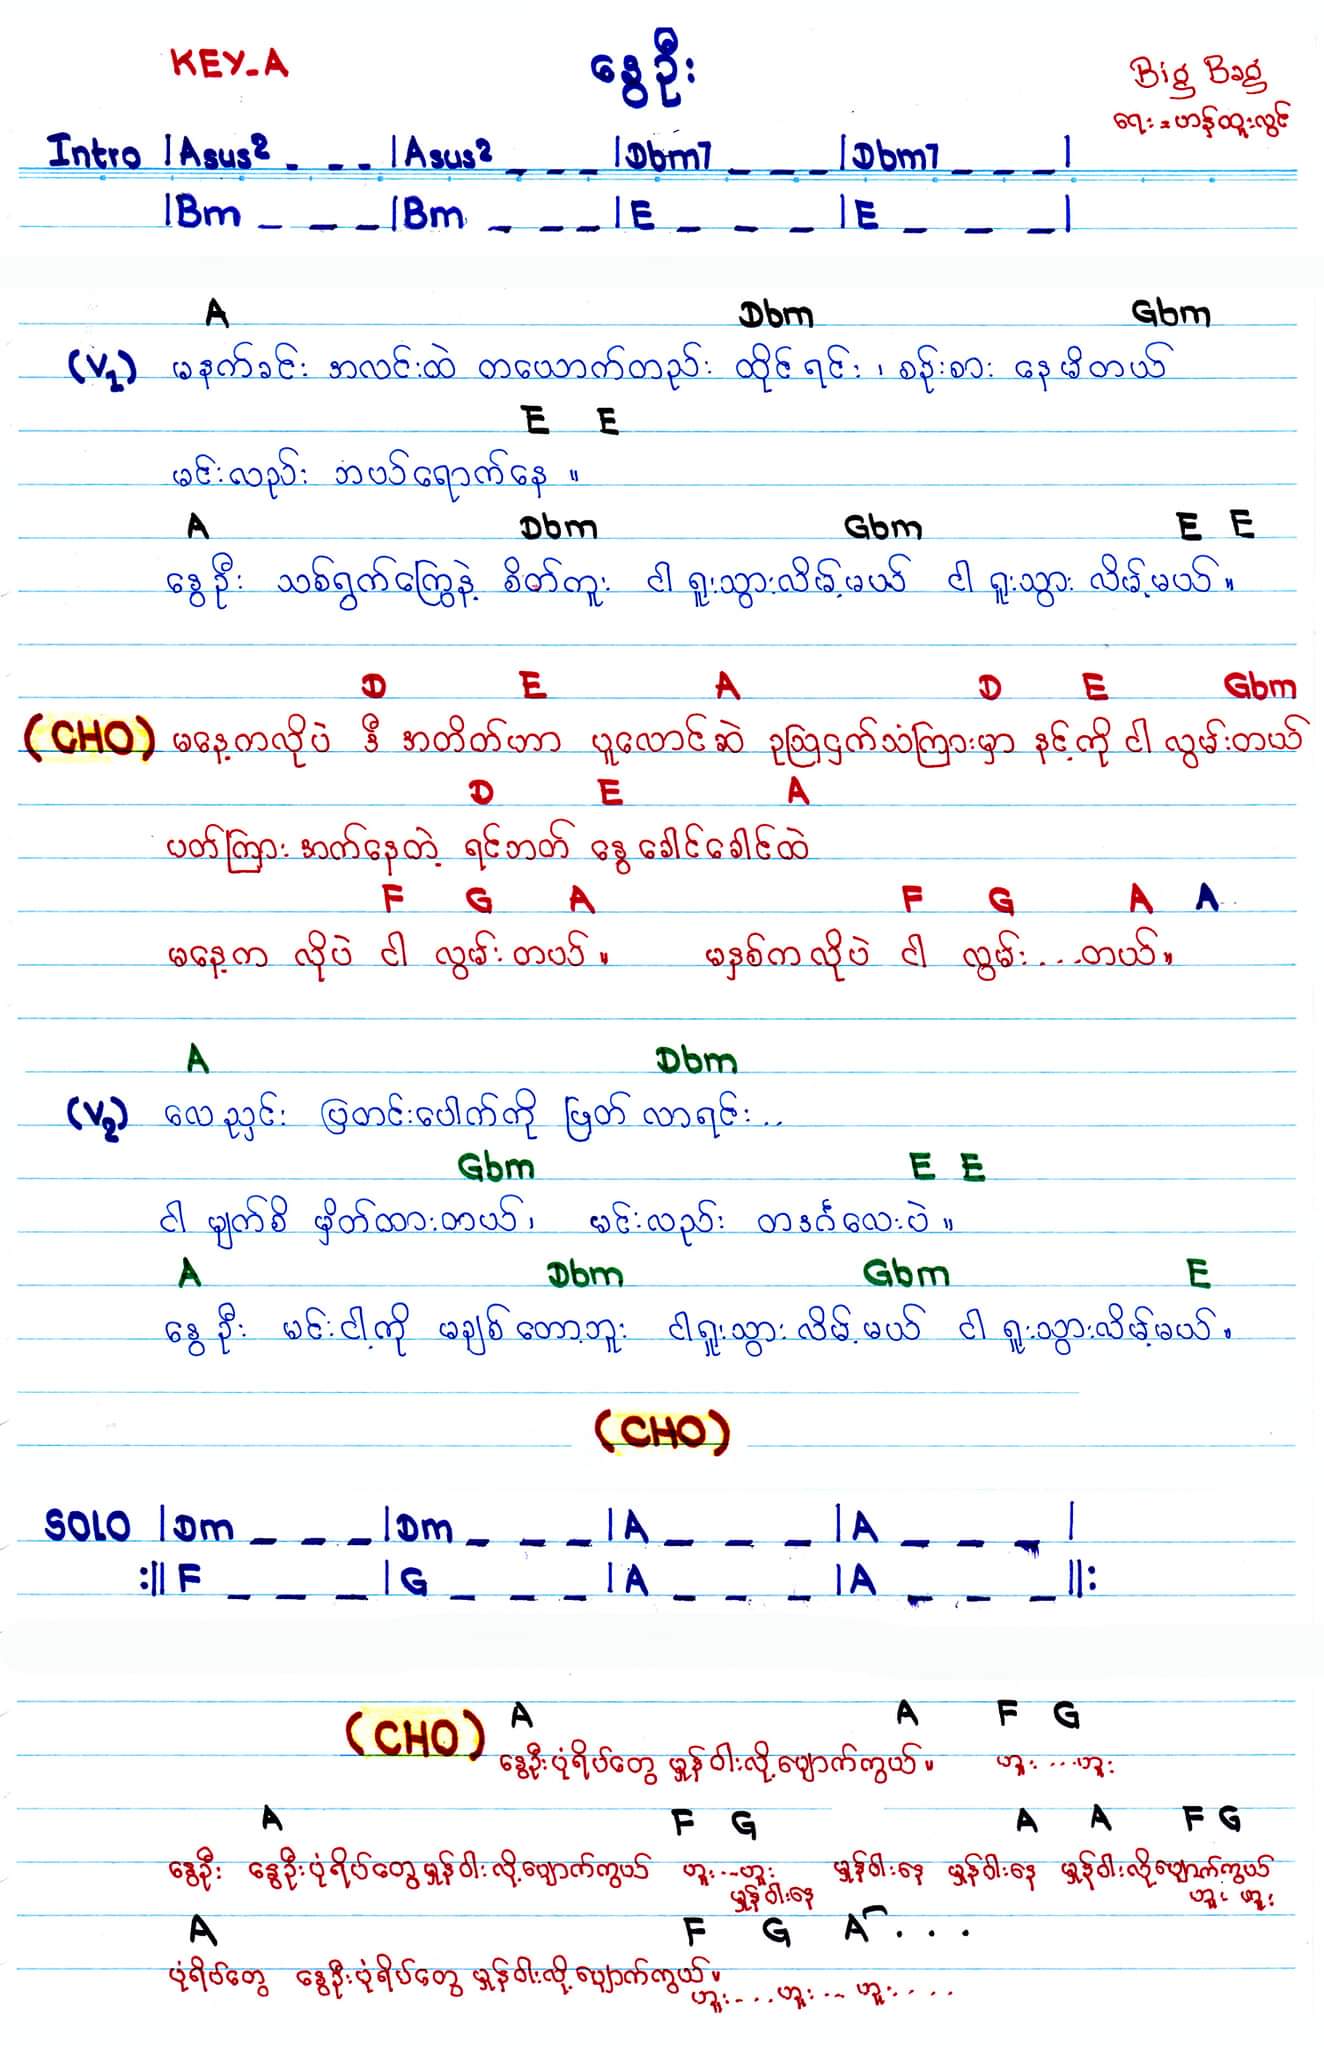 KEY-A
နွေဦး
Big Bag
ရေး = ဟန်ထူးလွင်
Intro |Asus2 _ _ _ |Asus2 _ _ _ |Dbm7 _ _ _ |Dbm7 _ _ _ |
|Bm _ _ _ |Bm _ _ _ |E _ _ _ |E _ _ _ |
A Dbm Gbm
(V1) မနက်ခင်း အလင်းထဲ တယောက်တည်း ထိုင်ရင်း ၊ စဉ်းစား နေမိတယ်
E E
မင်းလည်း ဘယ်ရောက်နေ ။
A Dbm Gbm E E
နွေဦး သစ်ရွက်ကြွေနဲ့ စိတ်ကူး ငါ ရူးသွားလိမ့်မယ် ငါ ရူးသွား လိမ့်မယ် ။
D E A D E Gbm
(CHO) မနေ့ကလိုပဲ ဒီ အတိတ်ဟာ ပူလောင်ဆဲ ဥဩငှက်သံကြားမှာ နင့်ကို ငါ လွမ်းတယ်
D E A
ပတ်ကြား အက်နေတဲ့ ရင်ဘတ် နွေ ခေါင်ခေါင်ထဲ
F G A F G A A
မနေ့က လိုပဲ ငါ လွမ်း တယ် ။ မနှစ်ကလိုပဲ ငါ လွမ်း . . . တယ် ။
A Dbm
(V2) လေညှင်း ပြတင်းပေါက်ကို ဖြတ် လာရင်း . .
Gbm E E
ငါ မျက်စိ မှိတ်ထားတယ် ၊ မင်းလည်း တဒင်္ဂလေးပဲ ။
A Dbm Gbm E
နွေ ဦး မင်းငါ့ကို မချစ်တော့ဘူး ငါရူးသွားလိမ့်မယ် ငါ ရူးသွားလိမ့်မယ် ။
(CHO)
SOLO |Dm _ _ _ |Dm _ _ _ |A _ _ _ |A _ _ _ |
:|| F _ _ _ |G _ _ _ |A _ _ _ |A _ _ _ ||:
A A F G
(CHO) နွေဦးပုံရိပ်တွေ မှုန်ဝါးလို့ပျောက်ကွယ် ။ ဟူး . . . ဟူး
A F G A A F G
နွေဦး နွေဦးပုံရိပ်တွေ မှုန်ဝါးလို့ပျောက်ကွယ် ဟူး . . . ဟူး မှုန်ဝါးနေ မှုန်ဝါးနေ မှုန်ဝါးလို့ပျောက်ကွယ်
မှုန်ဝါးနေ ဟူး ဟူး
A F G A . . .
ပုံရိပ်တွေ နွေဦးပုံရိပ်တွေ မှုန်ဝါးလို့ပျောက်ကွယ် ။
ဟူး . . . . ဟူး . . . ဟူး . . . .